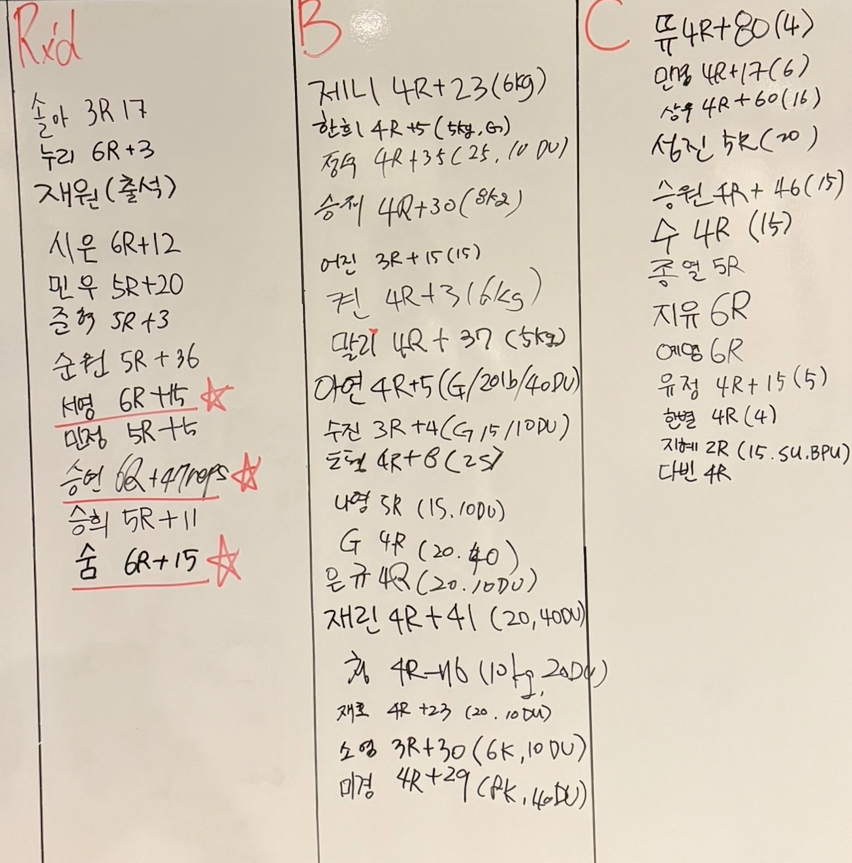 Rx'd
솔아 3R 17
누리 6R+3
재원(출석)
시은 6R+12
민우 5R+20
준혁 5R+3
순원 5R+36
서영 6R+15
민정 5R+5
승연 6R+47reps
승희 5R+11
숨 6R+15
B
제니 4R+23(6kg)
한희 4R+5(5kg,G)
정수 4R+35(25, 10 DU)
승제 4R+30(8kg)
어진 3R+15(15)
켠 4R+3(6kg)
말리 4R+37(5kg)
아연 4R+5(G/20lb/40DU)
수진 3R+4(G 15/10DU)
4R+8(25)
나영 5R (15.10DU)
G 4R (20.40)
은규 4R(20.10DU)
재린 4R+41 (20,40DU)
(10kg, 20DU)
재호 4R+23 (20.10DU)
소영 3R+30(6K,10DU)
미경 4R+29(8K,40DU)
C
쮸 4R+80(4)
민영 4R+17(6)
상우 4R+60(16)
성진 5R(20)
승원 4R+46(15)
수 4R (15)
종열 5R
지유 6R
예영 6R
유정 4R+15(5)
한별 4R(4)
지혜 2R (15.SU.BPU)
다빈 4R